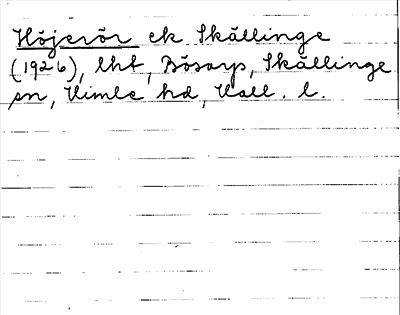 Höjerör ek Skällinge
(1926), lht, Bösarp, Skällinge
sn, Himle hd, Hall. l.